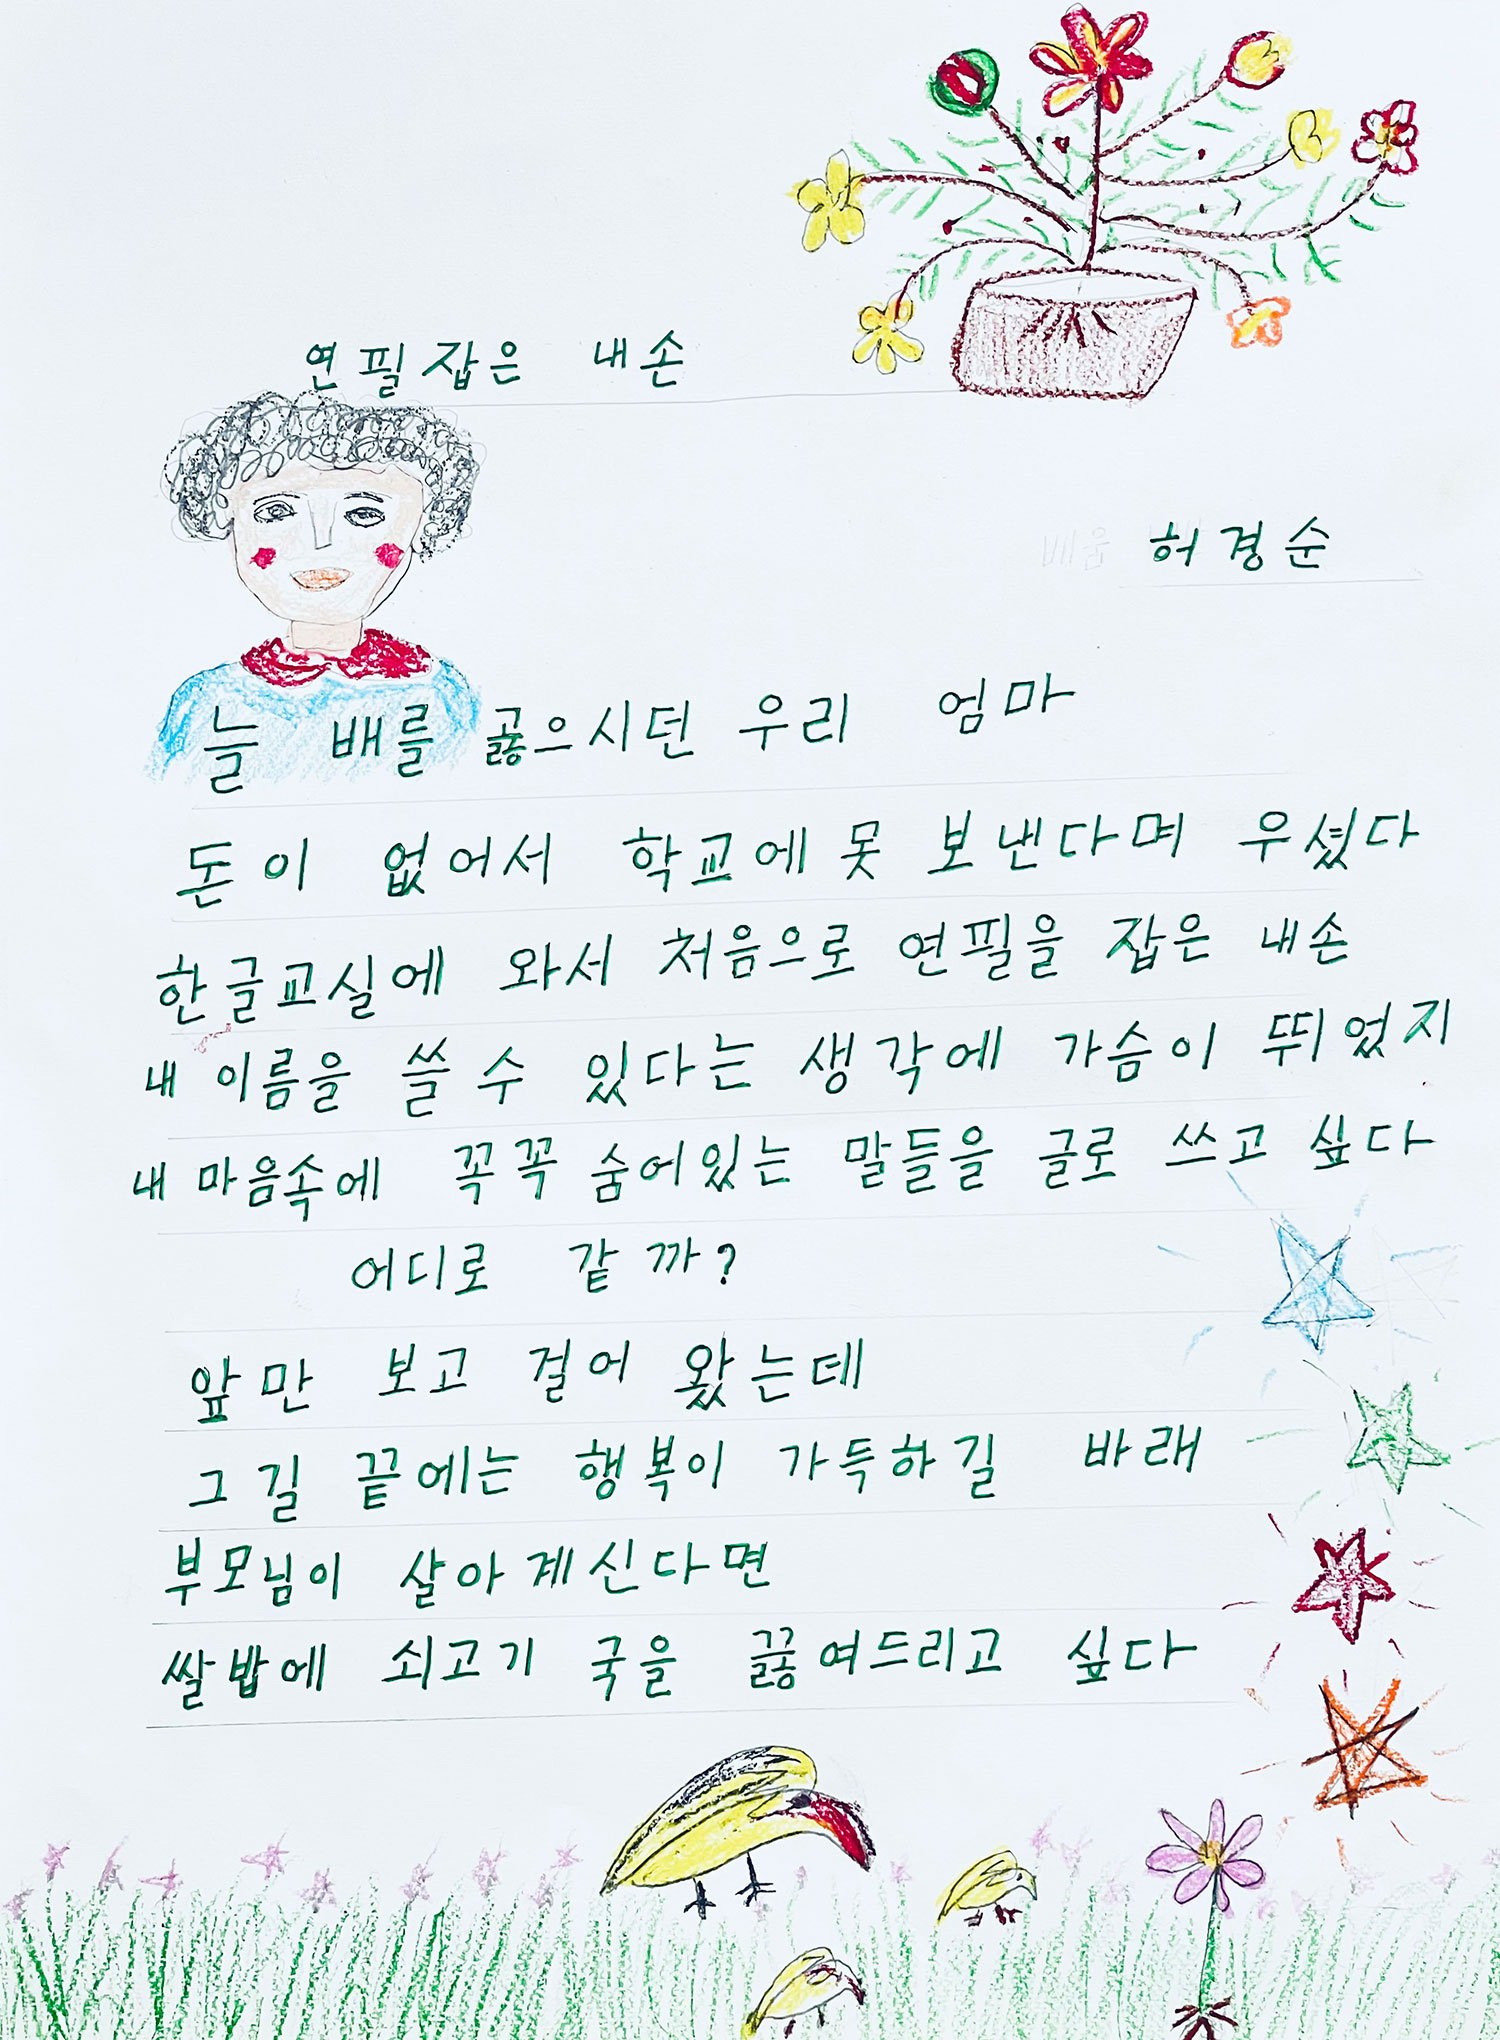 연필잡은 내손
배움 허경순
늘 배를 곯으시던 우리 엄마
돈이 없어서 학교에 못 보낸다며 우셨다
한글교실에 와서 처음으로 연필을 잡은 내손
내 이름을 쓸 수 있다는 생각에 가슴이 뛰었지
내 마음속에 꼭꼭 숨어있는 말들을 글로 쓰고 싶다
어디로 같까?
앞만 보고 걸어 왔는데
그길 끝에는 행복이 가득하길 바래
부모님이 살아계신다면
쌀밥에 쇠고기 국을 끓여드리고 싶다